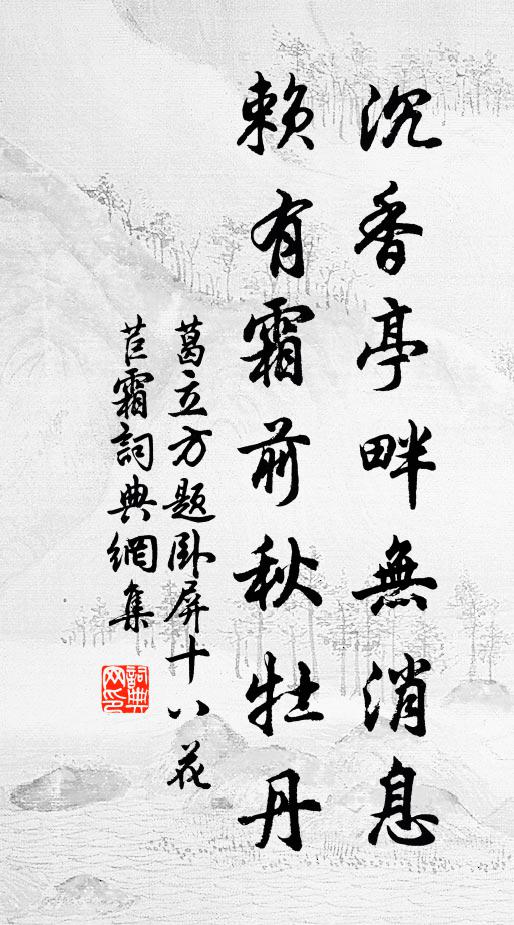 沉香亭畔無消息
賴有霜前秋牡丹
葛立方題臥屏十八花
苣霜詞典網集
詞典
网印